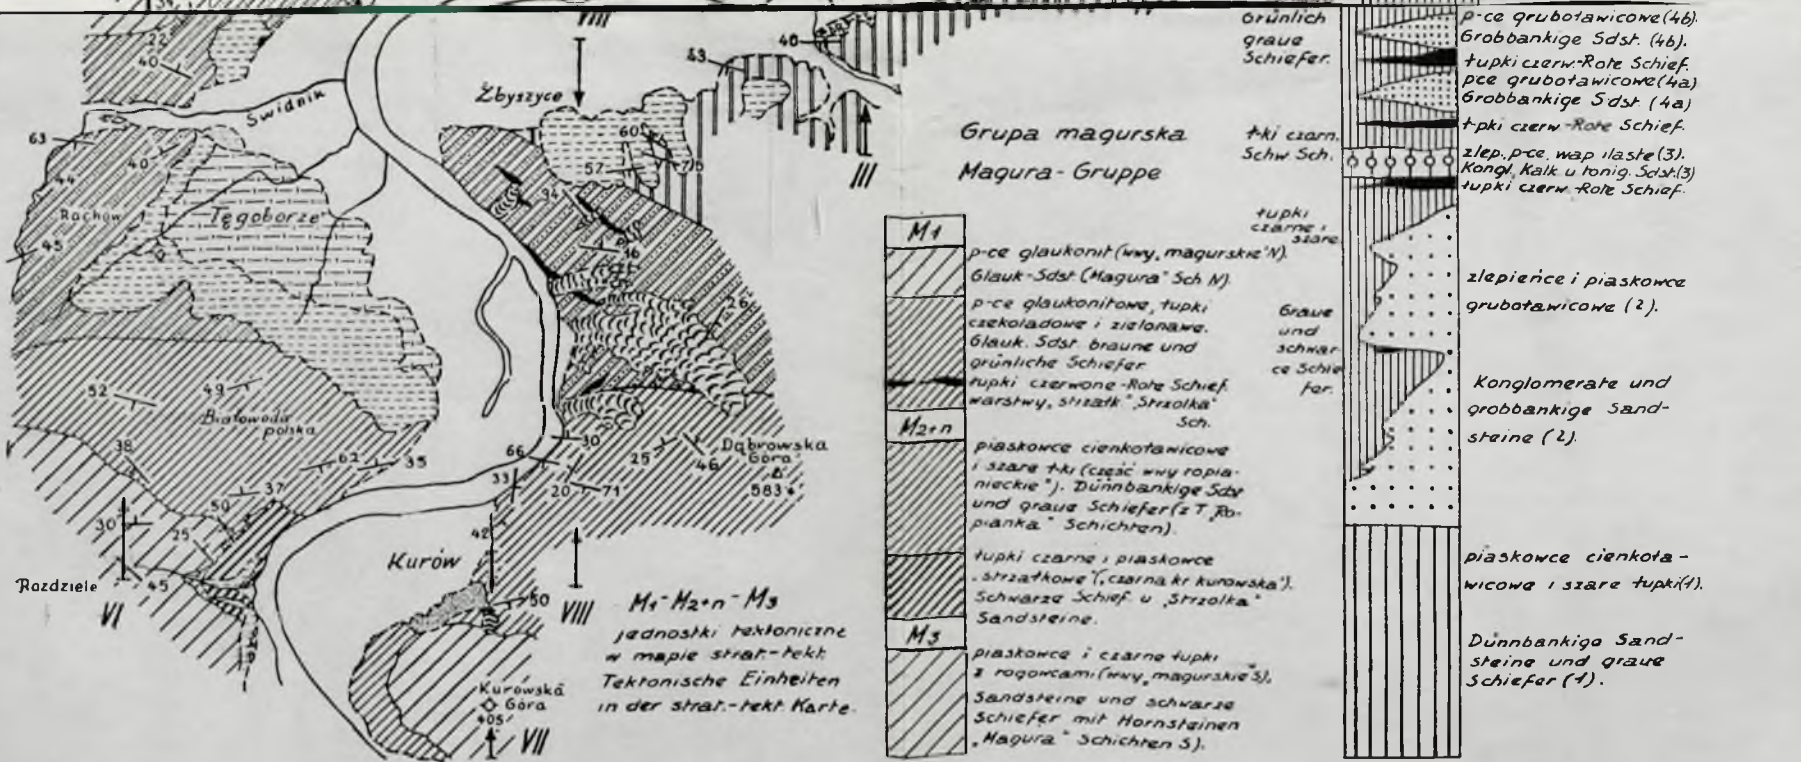 VIII
22
40
Swidnik
Zbyszyce
63
40
44
Rachów
45
Tęgoborze
60
57
75
34
16
26
33
40
III
52
49
Białowoda
polska
38
62
35
37
50
30
25
45
Rozdziele
VI
66
30
33
20
71
25
46
Dąbrowska
Góra
583
42
Kurów
VIII
50
Kurowska
Góra
405
VII
M1-M2+n-M3
jednostki tektoniczne
w mapie strat.-tekt.
Tektonische Einheiten
in der strat.-tekt. Karte.
Grupa magurska
Magura-Gruppe
M1
p-ce glaukonit (wwy „magurskie" N).
Glauk-Sdst. (Magura" Sch N).
p-ce glaukonitowe, łupki
czekoladowe i zielonawe.
Glauk. Sdst. braune und
grünliche Schiefer
łupki czerwone-Rote Schief.
warstwy „strzałk" „Strzolka"
Sch.
M2+n
piaskowce cienkoławicowe
i szare ł-ki (część wwy ropia-
nieckie"). Dünnbankige Sdst
und graue Schiefer (z T. „Ro-
pianka" Schichten).
łupki czarne i piaskowce
„strzałkowe" („czarna kr kurowska").
Schwarze Schief. u „Strzolka"
Sandsteine.
M3
piaskowce i czarne łupki
z rogowcami (wwy „magurskie S).
Sandsteine und schwarze
Schiefer mit Hornsteinen
„Magura" Schichten S).
Grünlich
graue
Schiefer.
ł-ki czarn.
Schw Sch.
łupki
czarne i
szare.
Graue
und
schwar-
ce Schie
fer.
p-ce gruboławicowe (4b).
Grobbankige Sdst. (4b).
łupki czerw.-Rote Schief.
pce gruboławicowe (4a)
Grobbankige Sdst. (4a)
ł-pki czerw-Rote Schief.
zlep., p-ce. wap ilaste (3).
Kongl. Kalk u tonig. Sdst. (3)
łupki czerw.-Rote Schief.
zlepieńce i piaskowce
gruboławicowe (2).
Konglomerate und
grobbankige Sand-
steine (2).
piaskowce cienkoła-
wicowe i szare łupki (1).
Dünnbankige Sand-
steine und graue
Schiefer (1).